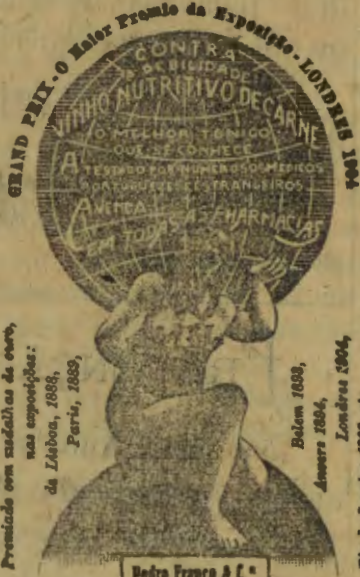 GRAND PRIX - O Maior Premio da Exposição - LONDRES 1904
CONTRA
A DEBILIDADE
VINHO NUTRITIVO DE CARNE
O MELHOR TONICO
QUE SE CONHECE
ATTESTADO POR NUMEROSOS MEDICOS
PORTUGUEZES E ESTRANGEIROS
Á VENDA
EM TODAS AS PHARMACIAS
Premiado com medalhas de ouro,
nas exposições:
de Lisboa, 1888,
Paris, 1889,
Belem 1893,
Anvers 1894,
Londres 1904,
Pedro Franco & C.ª